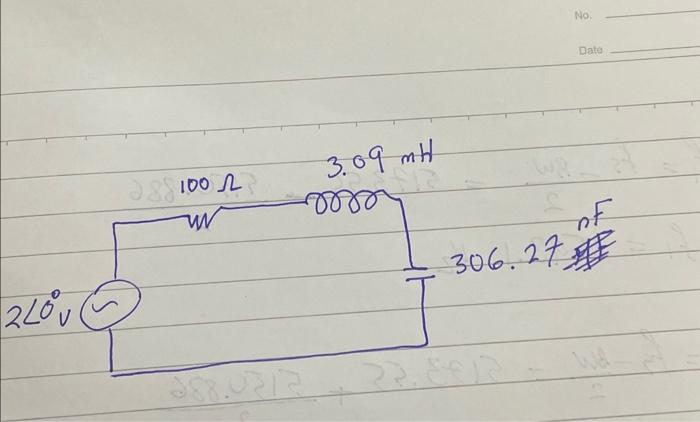 No.
Date
100 Ω
3.09 mH
306.27 nF
2∠0° V